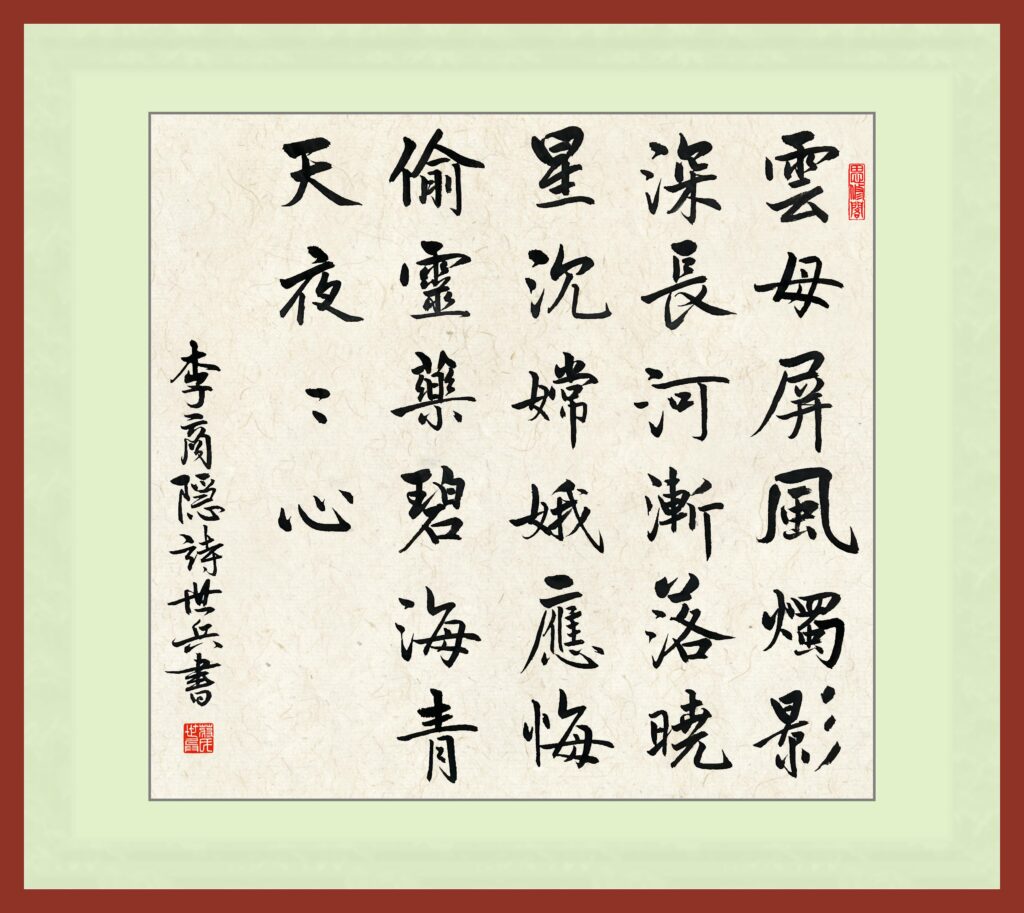 雲母屏風燭影
深長河漸落曉
星沉嫦娥應悔
偷靈藥碧海青
天夜〻心
李商隐詩世兵書